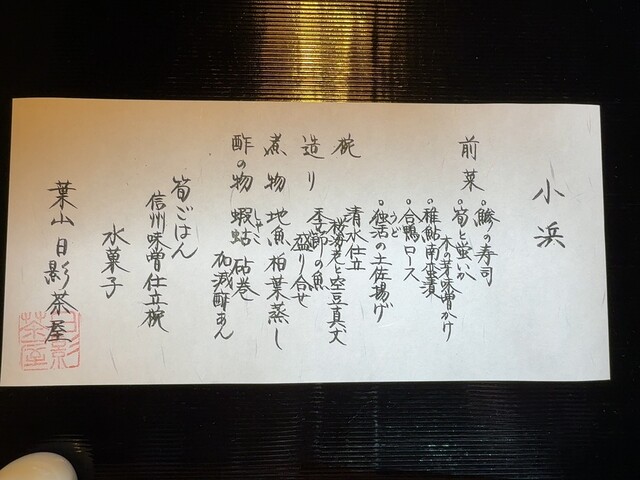 小浜
前菜
。鯵の寿司
。筍と蛍いか
木の芽味噌かけ
。稚鮎南蛮漬
。合鴨ロース
うど
。独活の土佐揚げ
椀
清水仕立
桜海老と空豆真丈
造り
季節の魚
盛り合せ
煮物 地魚柏葉蒸し
酢の物
しゃこ
蝦蛄砧巻
加減酢あん
筍ごはん
信州味噌仕立椀
水菓子
葉山日影茶屋
日影
茶屋